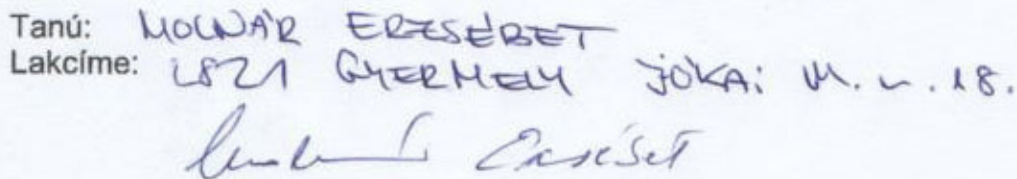 Tanú: MOLNÁR ERZSÉBET
Lakcíme: 2821 GYERMELY JÓKAI M. u. 18.
Molnár Erzsébet